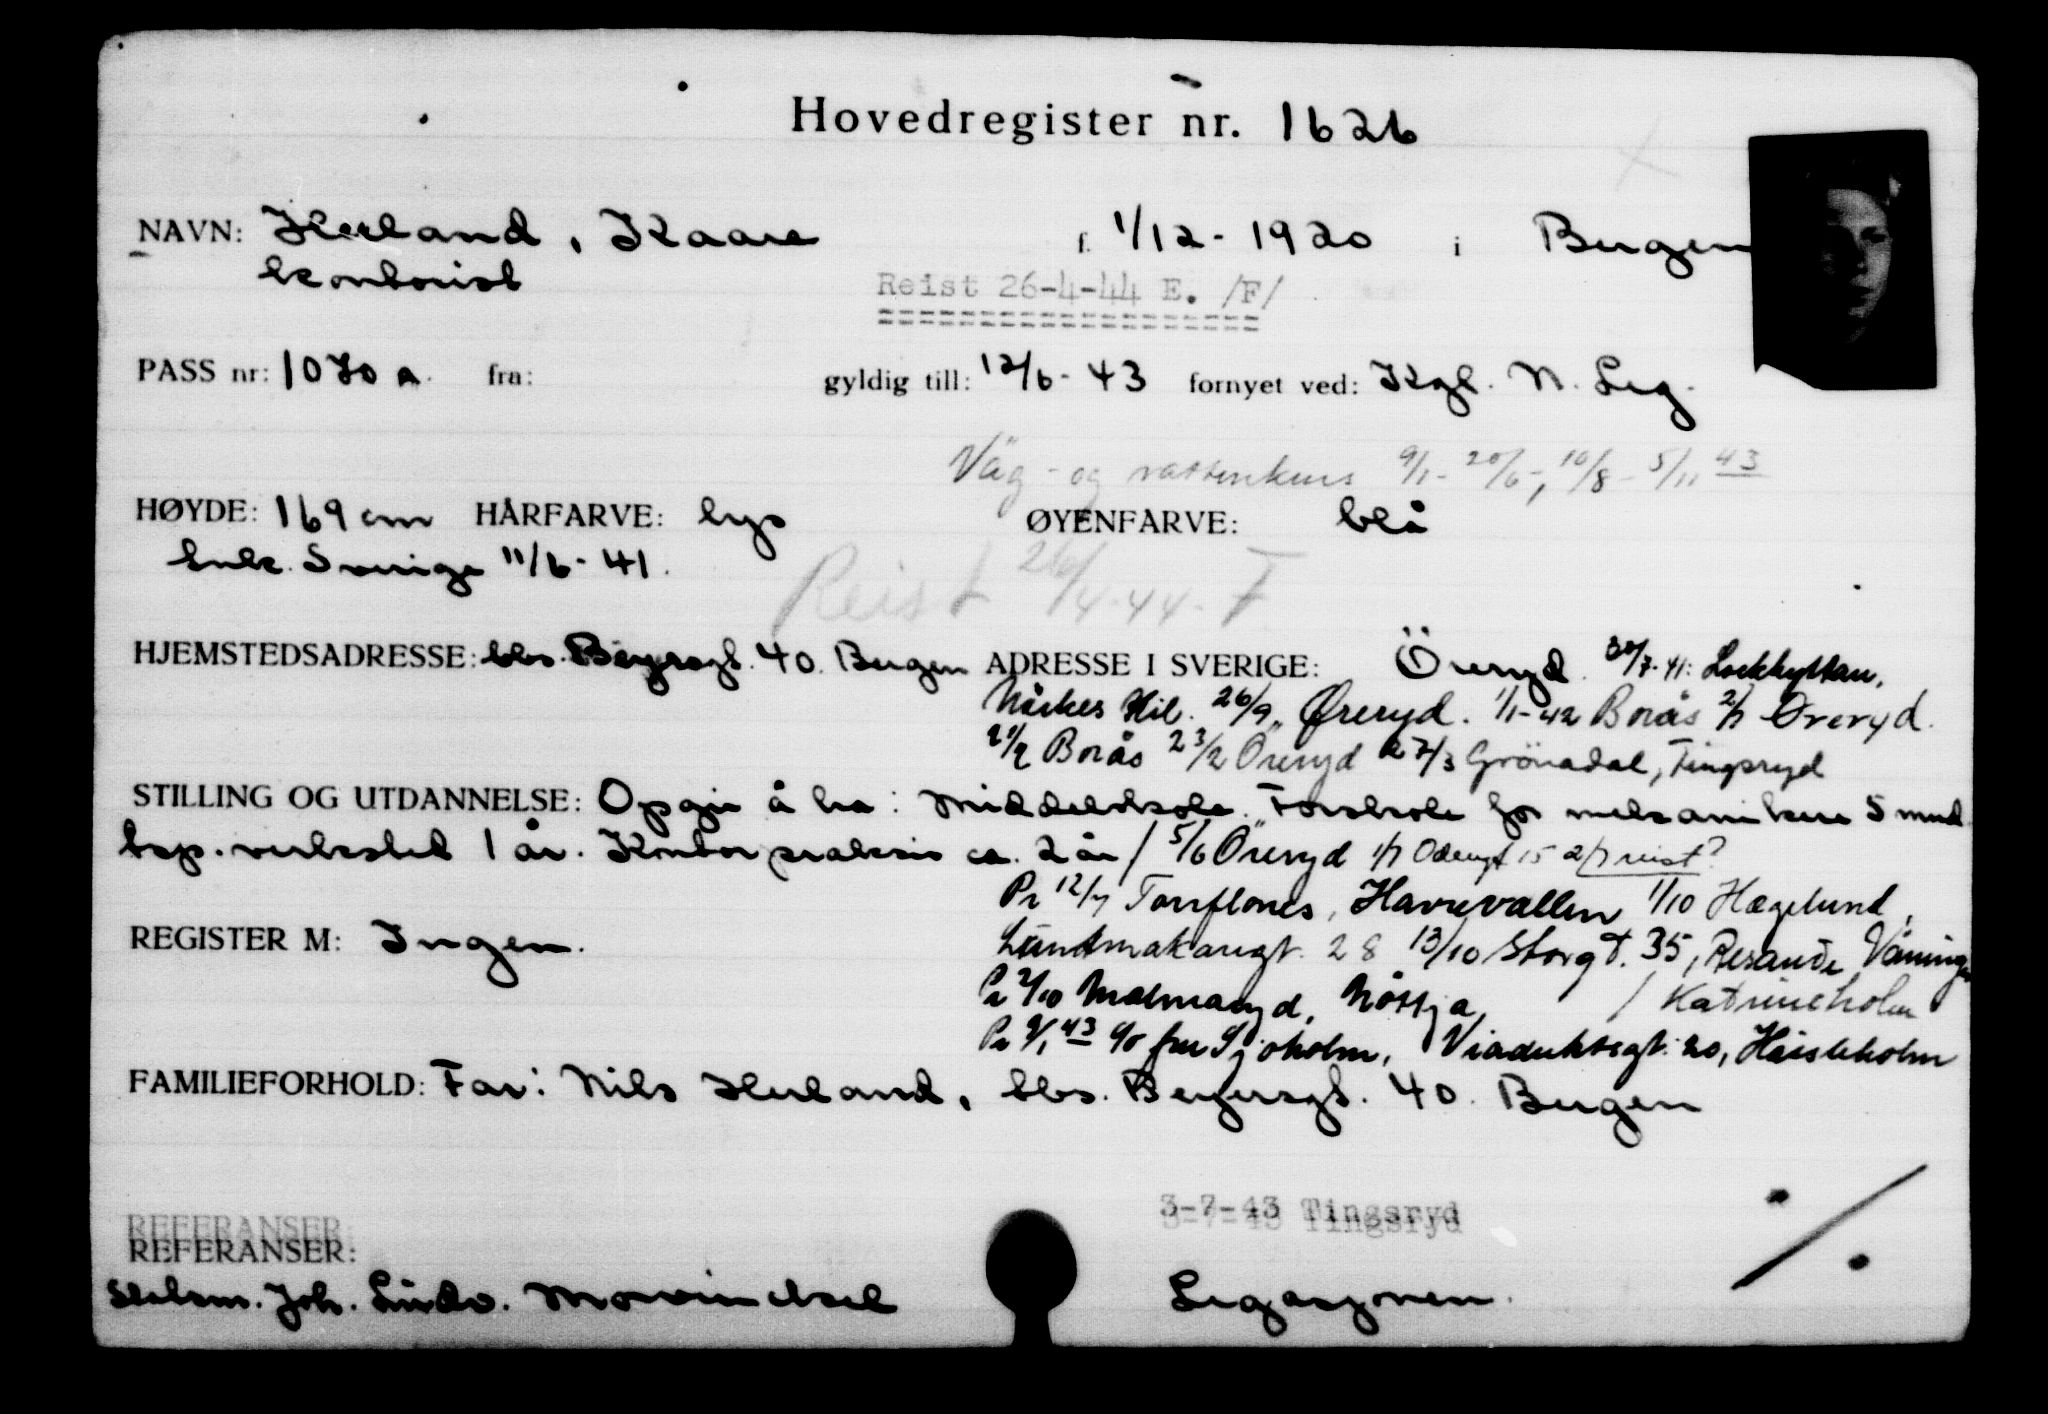 Hovedregister nr. 1626
NAVN: Herland, Kaare f. 1/12-1920 i Bergen
kontorist
Reist 26-4-44 E. /F/
PASS nr: 1070 a. fra: gyldig till: 12/6-43 fornyet ved: Kgl. N. Leg.
Väg- og vattenkurs 9/1-20/6-, 10/8-5/11 43
HØYDE: 169 cm HÅRFARVE: lys ØYENFARVE: blå
Ank. Sverige 11/6-41.
Reist 26/4-44-F
HJEMSTEDSADRESSE: bbs. Beyersgt. 40. Bergen ADRESSE I SVERIGE: Öreryd. 30/7-41: Lockhyttan,
Närkes Kil. 26/9 Øreryd. 1/1-42 Borås 2/1 Øreryd.
Borås 23/2 Öreryd 27/3 Grönadal, Tingsryd
STILLING OG UTDANNELSE: Opgir å ha: Middelskole. Forskole for mekanikere 5 mnd.
bsp. verksted 1 år. Kontorpraksis ca. 2 år / 5/6 Öreryd 1/7 Odengt 15 2/7 reist?
Pr 12/7 Torrflones, Havrevallen 1/10 Hægelund,
Luntmakaregt. 28 13/10 Storgt. 35, Resande Våningen
REGISTER M: Ingen.
Pr 2/10 Malmaryd, Nöttja, / Katrineholm
Pr 9/1 43 c/o fru Sjøholm, Viaduktsgt. 20, Hässleholm
FAMILIEFORHOLD: Far: Nils Herland, bbs. Beyersgt. 40. Bergen
3-7-43 Tingsryd
REFERANSER:
REFERANSER:
Statsm. Joh. Ludv. Mowinckel Legasjonen.